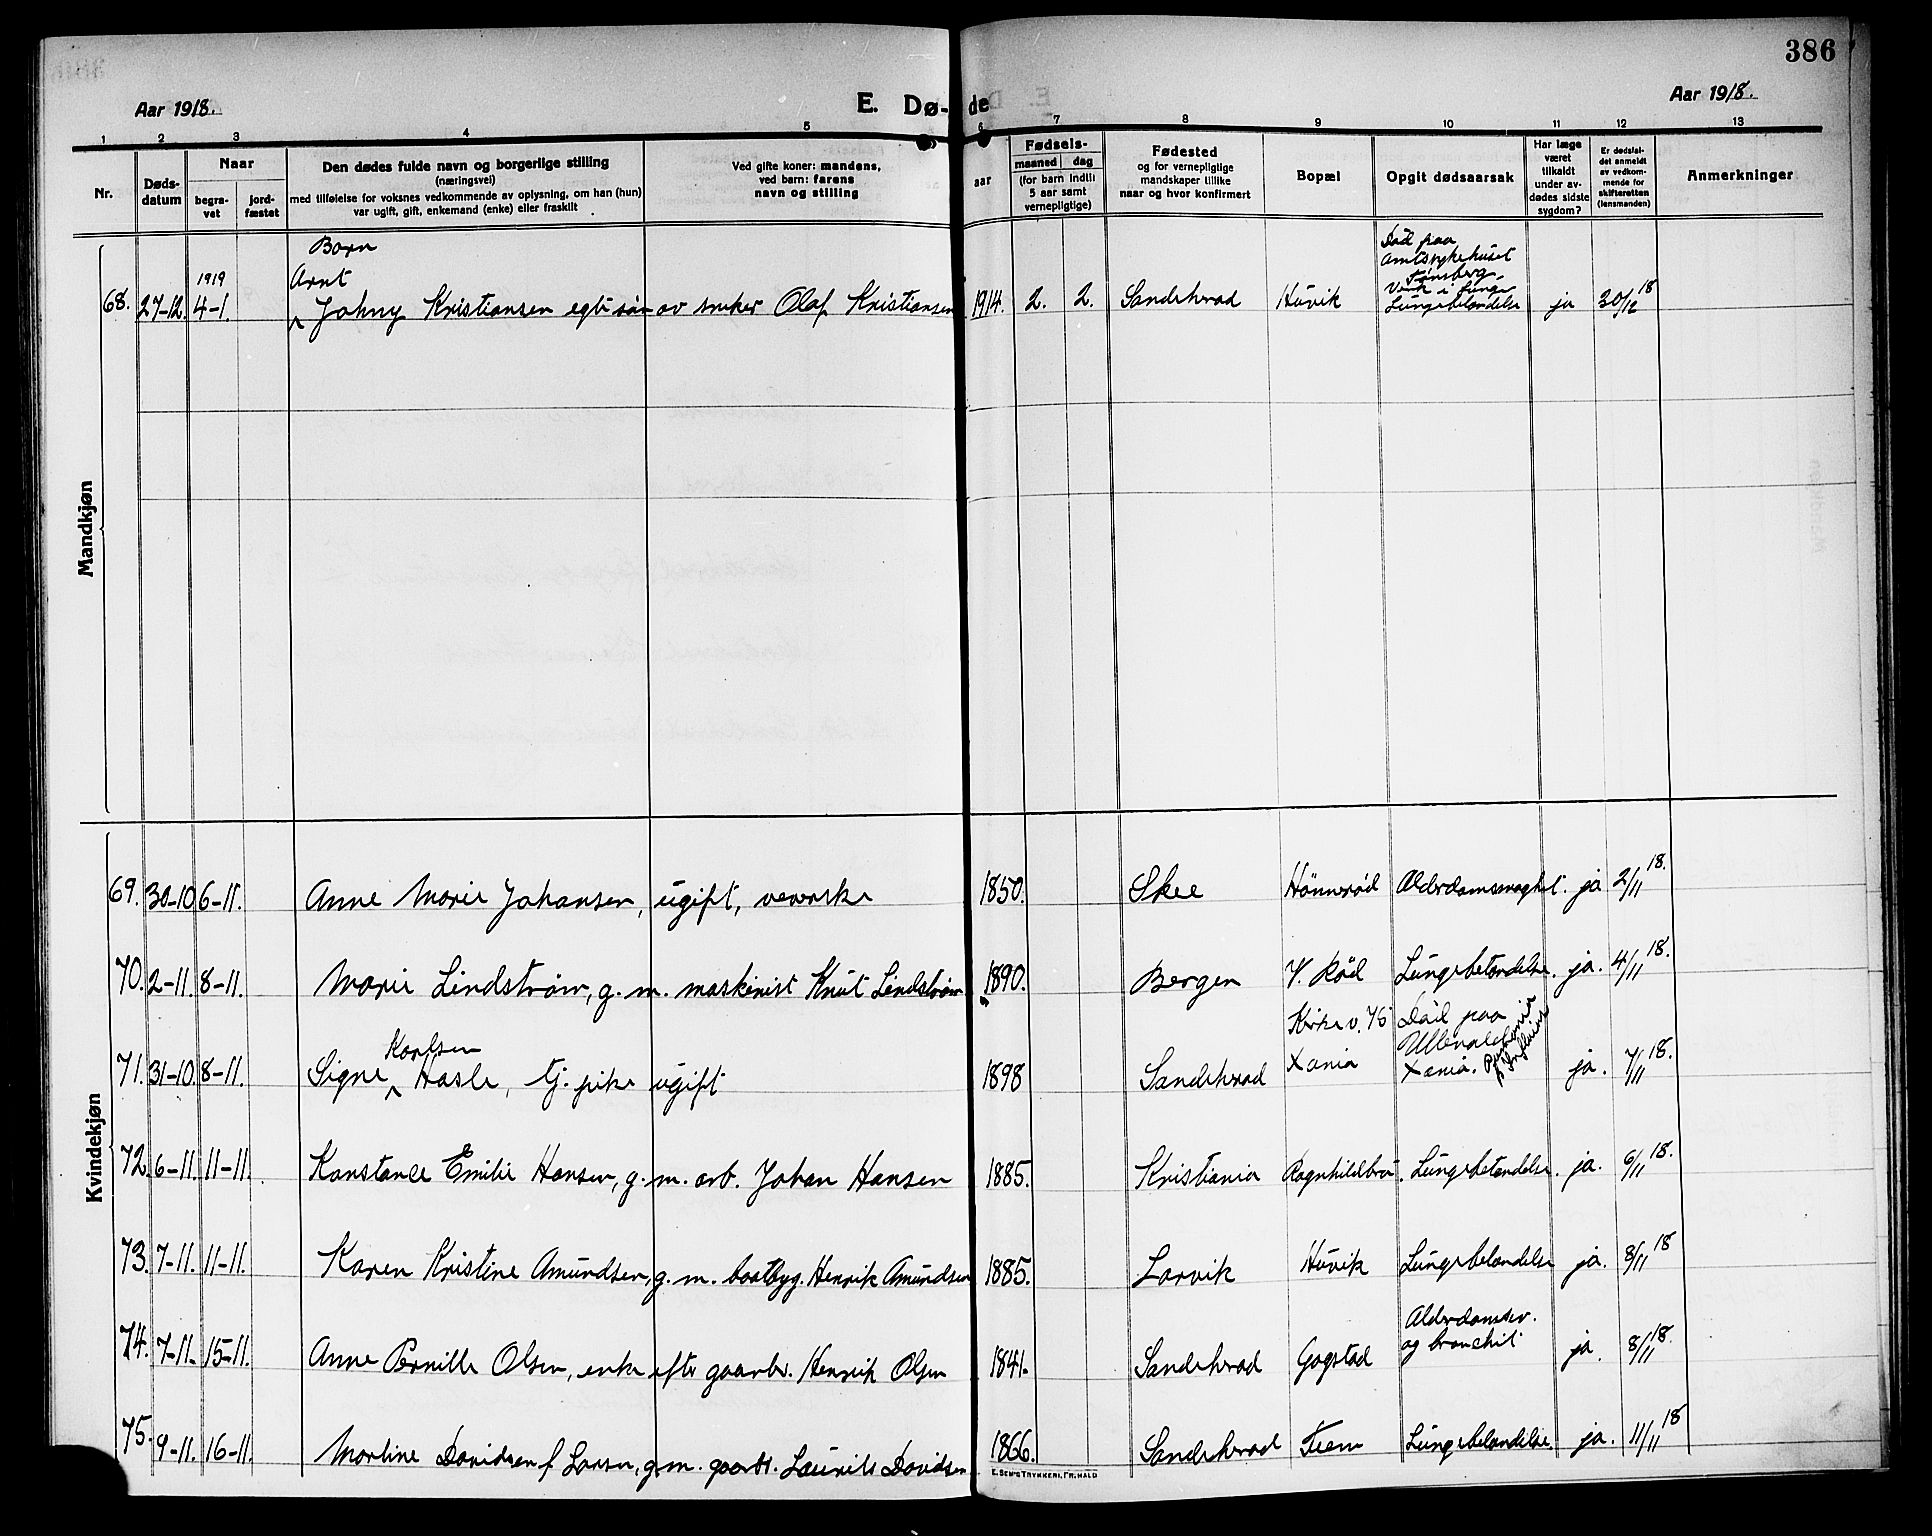 386
Aar 1918.
E. Dø-
de
Aar 1918.
1 2 3 4 5 6 7 8 9 10 11 12 13
Nr.
Døds-
datum
Naar
begra-
vet
jord-
fæstet
Den dødes fulde navn og borgerlige stilling
(næringsvei)
med tilføielse for voksnes vedkommende av oplysning, om han (hun)
var ugift, gift, enkemand (enke) eller fraskilt
Ved gifte koner: mandens,
ved barn: farens
navn og stilling
aar
Fødsels-
maaned dag
(for barn indtil
5 aar samt
vernepligtige)
Fødested
og for vernepligtige
mandskaper tillike
naar og hvor konfirmert
Bopæl
Opgit dødsaarsak
Har læge
været
tilkaldt
under av-
dødes sidste
sygdom?
Er dødsfal-
det anmeldt
av vedkom-
mende for
skifteretten
(lensmanden)
Anmerkninger
Mandkjøn
Barn
Arnt
1919
Død paa
Amtssykehuset
Tønsberg
68. 27-12. 4-1. Johny Kristiansen egte søn av smker Olaf Kristiansen 1914. 2. 2. Sandeherad Huvik Lungebetændelse ja 30/12 18
Kvindekjøn
69. 30-10 6-11. Anne Marie Johansen, ugift, væverske 1850. Skee Hønnerød Alderdomssvaghet. ja 2/11 18.
70. 2-11. 8-11. Marie Lindstrøm, g. m. maskinist Knut Lindstrøm 1890. Bergen V. Rød Lungebetændelse. ja. 4/11 18.
Karlsen
Kirkev. 75 Død paa
Ullevaal
71. 31-10. 8-11. Signe Hasle, tj. pike ugift 1898 Sandeherad Xania Xania. ja. 7/11 18.
72. 6-11. 11-11. Konstance Emilie Hansen, g. m. arb. Johan Hansen 1885. Kristiania Ragnhildbrø. Lungebetændelse. ja. 6/11 18.
73. 7-11. 11-11. Karen Kristine Amundsen, g. m. baatbyg. Henrik Amundsen 1885. Larvik Huvik Lungebetændelse ja. 8/11 18
Alderdomssv.
og bronchit
74. 7-11. 15-11. Anne Pernille Olsen, enke efter gaarbr. Henrik Olsen 1841. Sandeherad Gogstad ja. 8/11 18.
75. 9-11. 16-11. Martine Davidsen f. Larsen, g. m. gaarbr. Laurits Davidsen 1866. Sandeherad Fiem Lungebetændelse. ja. 11/11 18
E. SEM'S TRYKKERI, FR.HALD